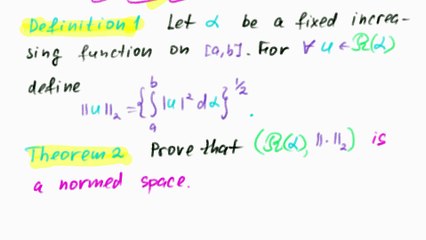 Definition 1 Let α be a fixed increa-
sing function on [a,b]. For ∀ u ∈ ℛ(α)
define
||u||₂ = { ∫ₐᵇ |u|² dα }^½ .
Theorem 2 Prove that (ℛ(α), ||·||₂) is
a normed space.